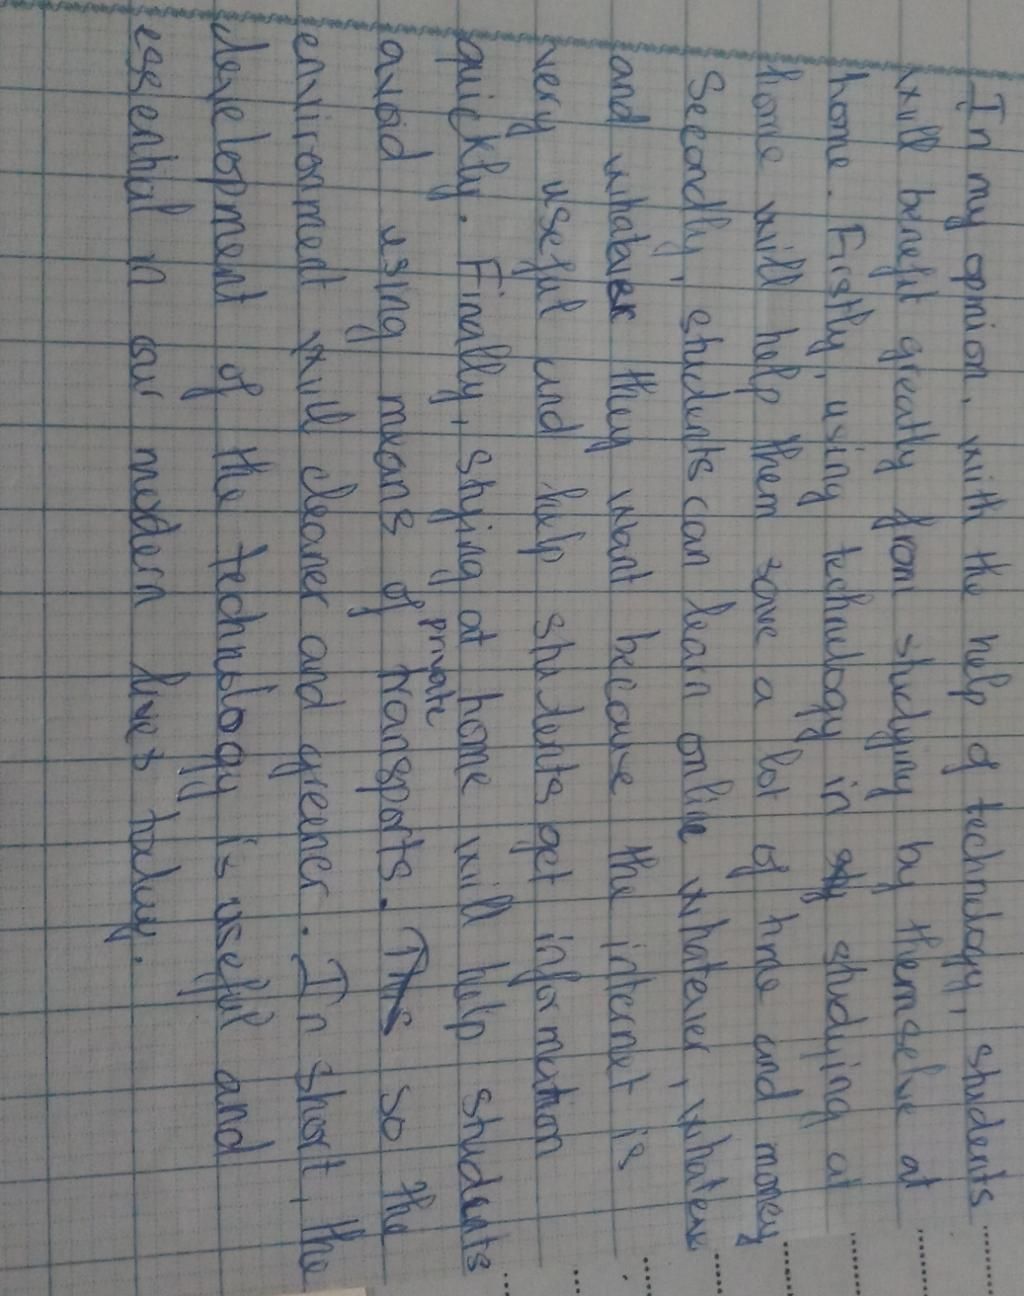 In my opinion, with the help of technology, students
will benefit greatly from studying by themselve at
home. Firstly, using technology in studying at
home will help them save a lot of time and money
Secondly, students can learn online whatever, whatever
and whatever they want because the internet is
very useful and help students get information
quickly. Finally, stying at home will help students
avoid using means of private transports. so the
environment will cleaner and greener. In short, the
development of the technology is useful and
esential in our modern lives today.